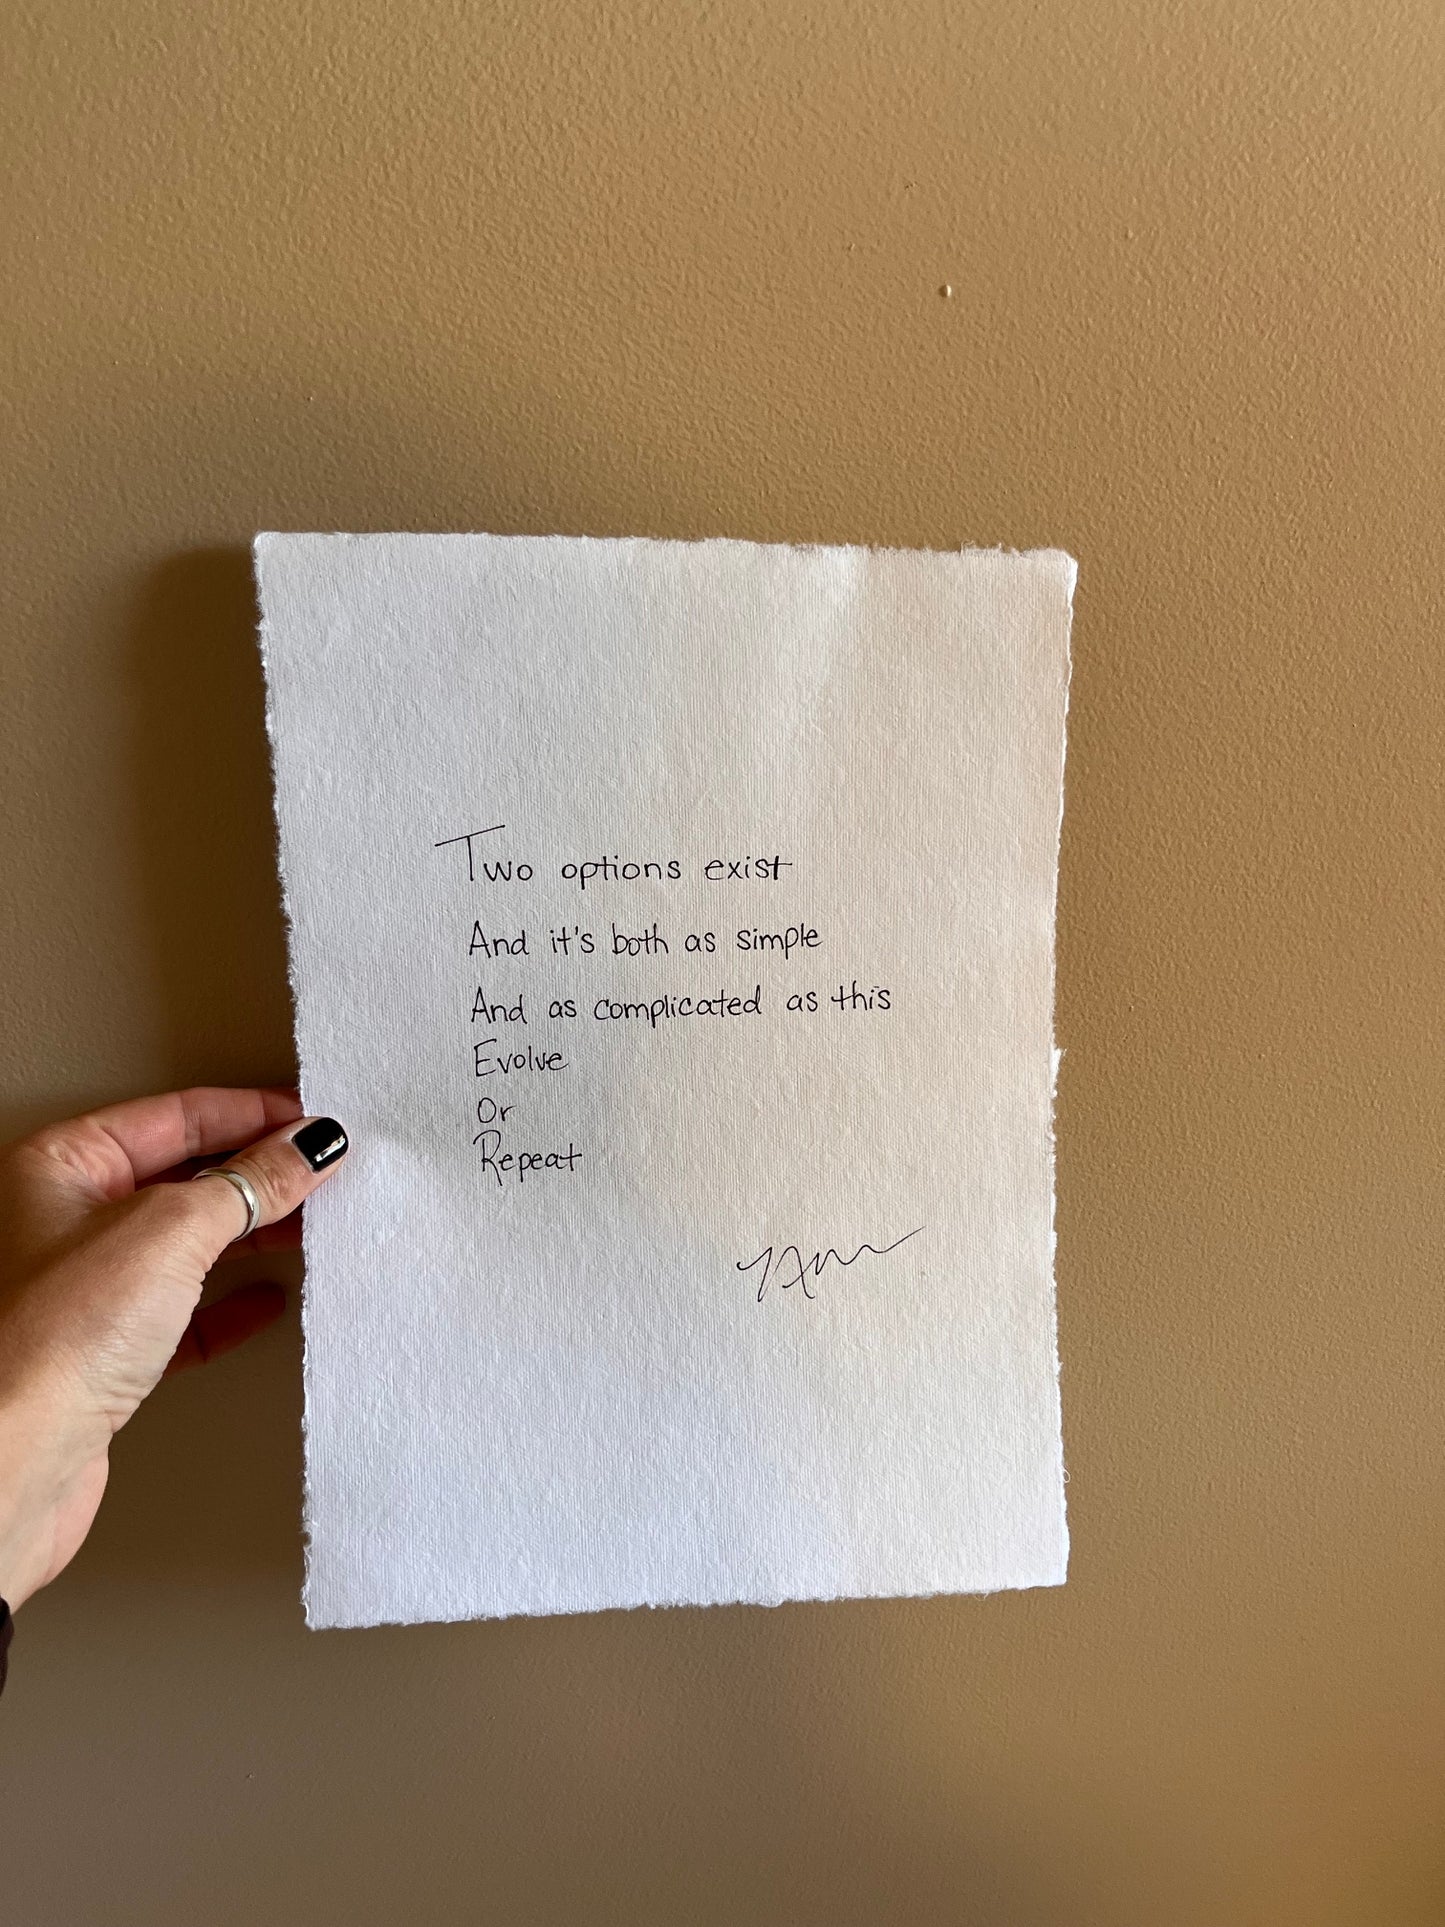 Two options exist
And it's both as simple
And as complicated as this
Evolve
Or
Repeat